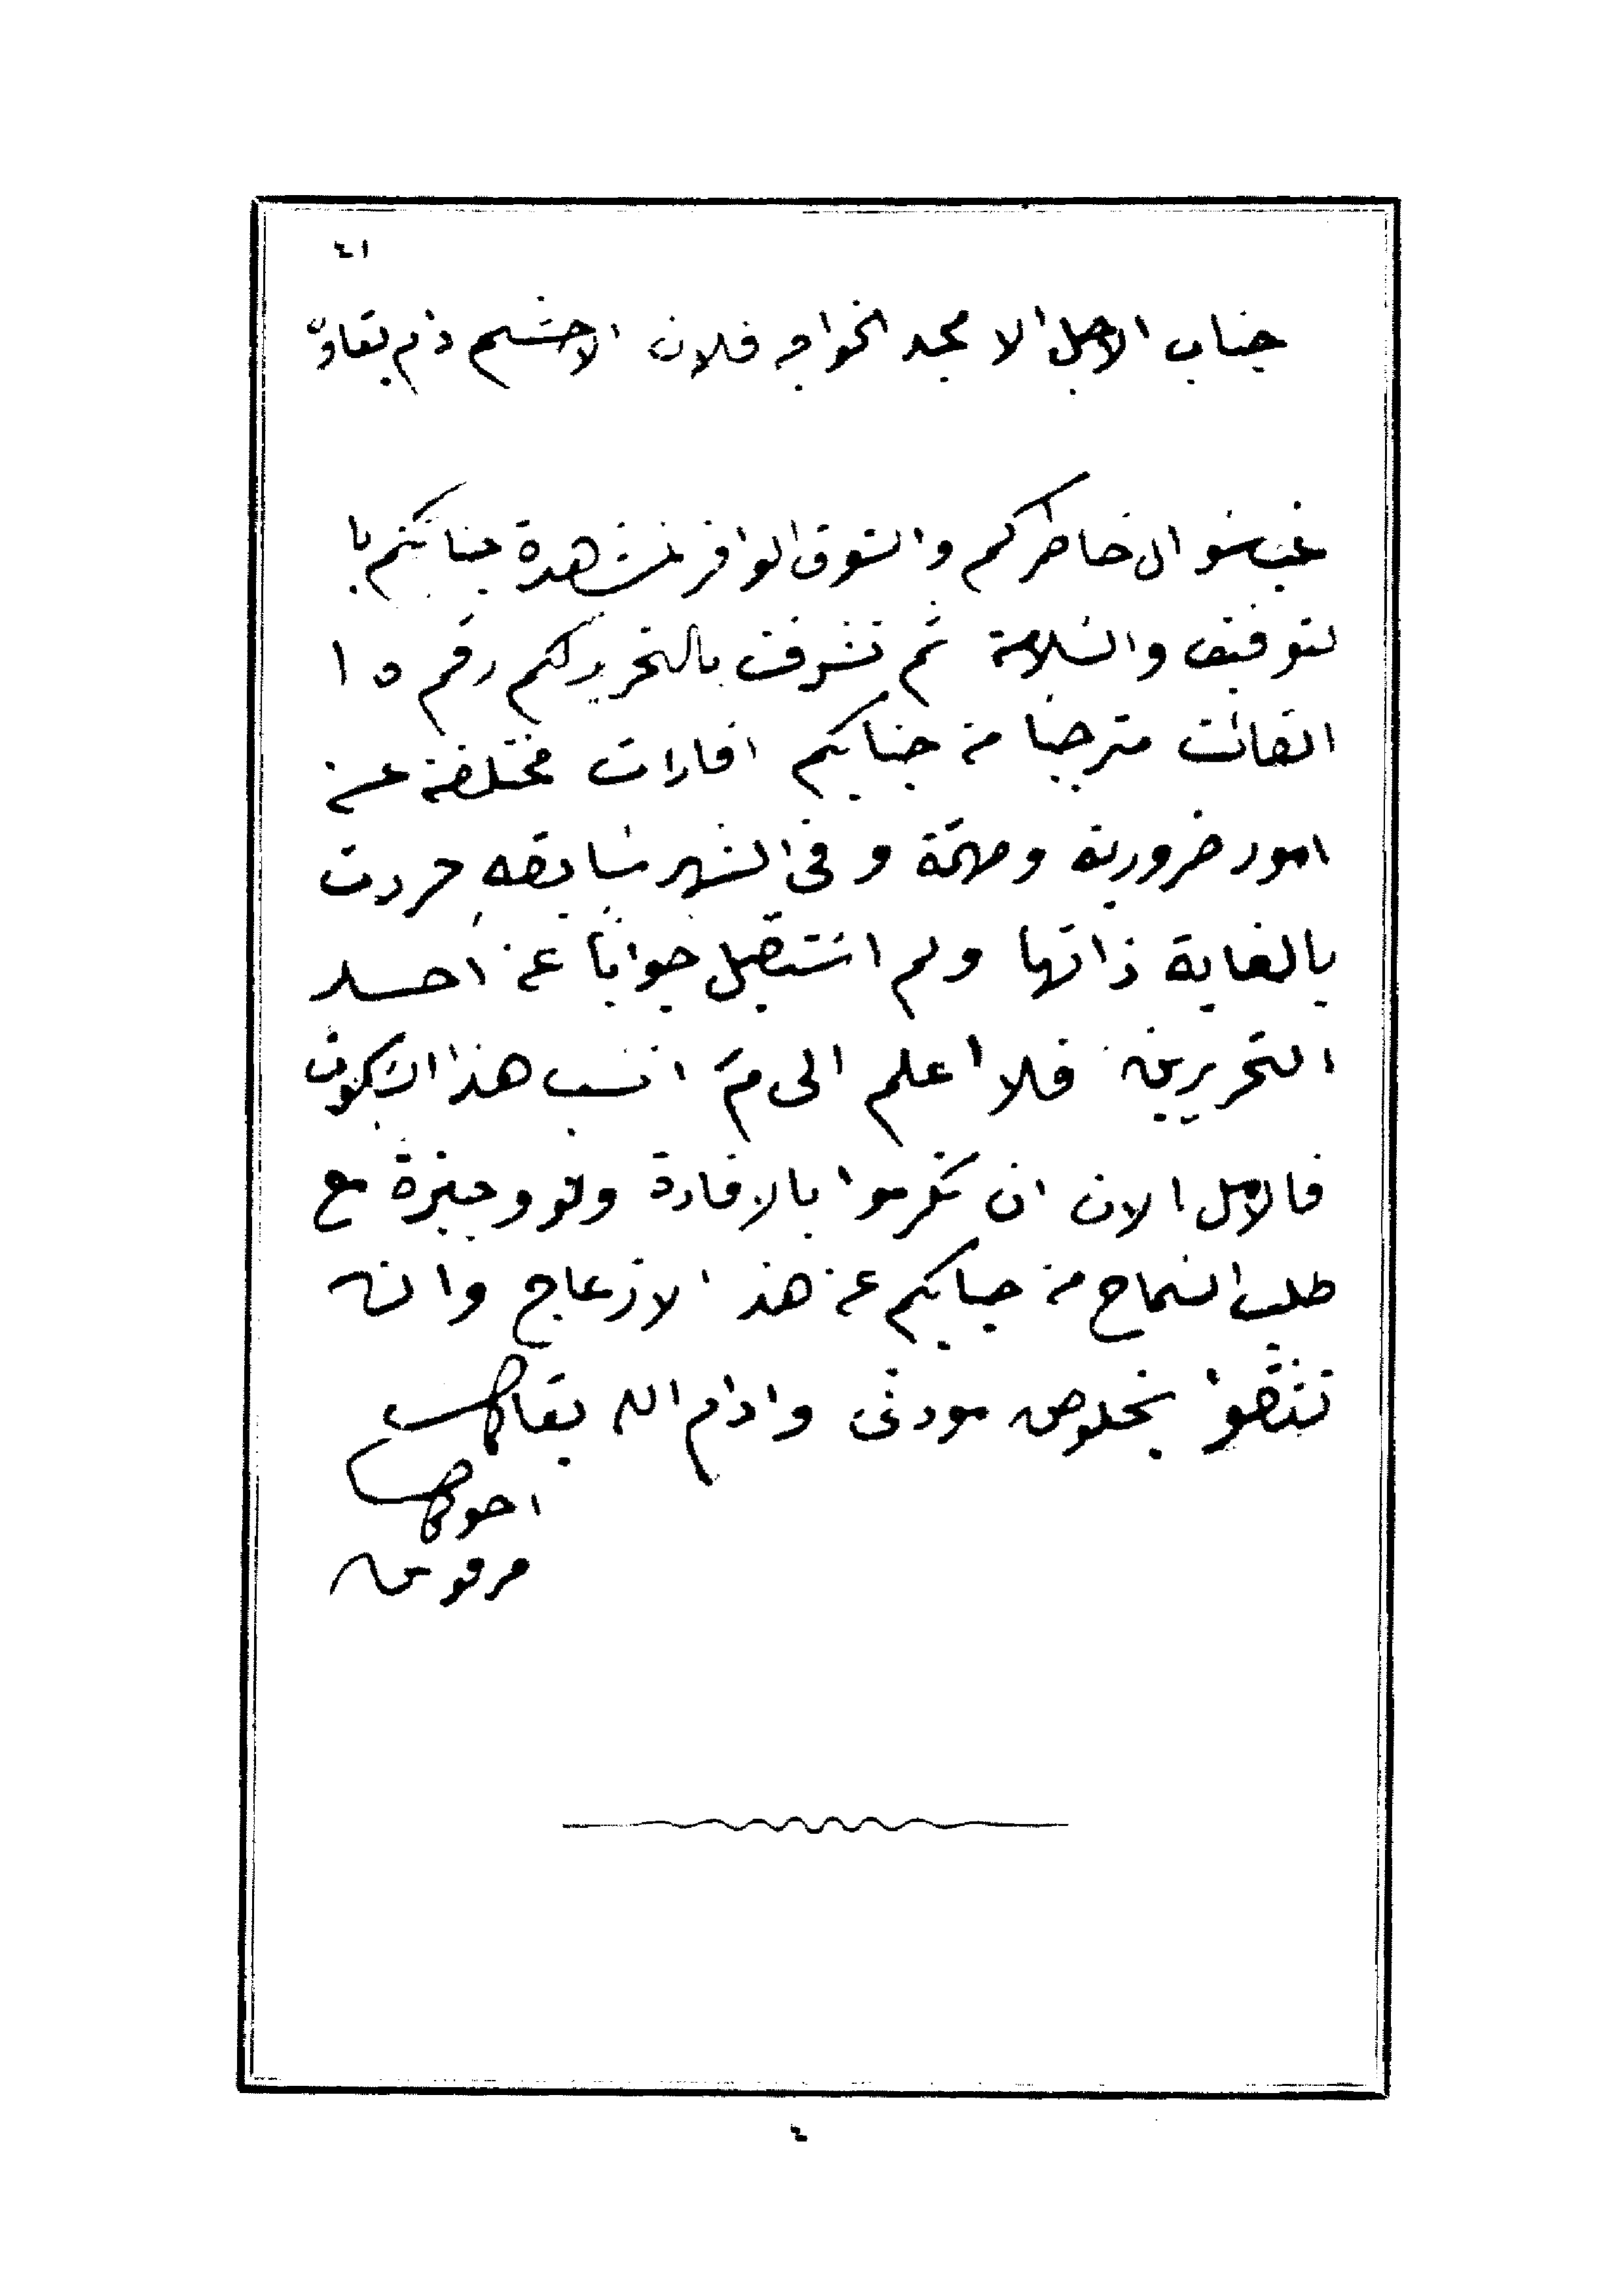 ٤١
جناب الاجل الامجد الخواجه فلان الاحشم دام بقاوه
غب سوال خاطركم والشوق الوافر لمشهدة جنابكم با
لتوفيق والسلامة ثم تشرفت بالتحريركم رقم ١٥
الفائت مترجيا من جنابكم افادات مختلفة عن
امور ضرورية ومهمة وفى الشهر سابقه حررت
بالغاية ذاتها ولم استقبل جوابا عن احد
التحريرين فلا اعلم الى مَ انسب هذا السكوت
فالامل الان ان تكرموا بالافادة ولو وجيزة مع
طلب السماح من جنابكم عن هذا الازعاج وان
تثقوا بخلوص مودتى وادام الله بقاكم
اخوكم
مرقوس
٤